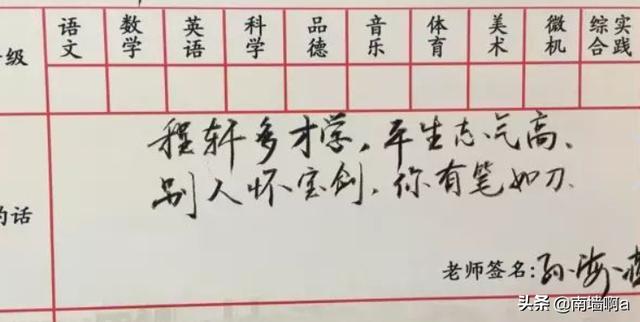 语文 数学 英语 科学 品德 音乐 体育 美术 微机 综合实践
级
程轩多才学，平生志气高、
别人怀宝剑，你有笔如刀.
的话
老师签名：孙海
头条 @南墙啊a